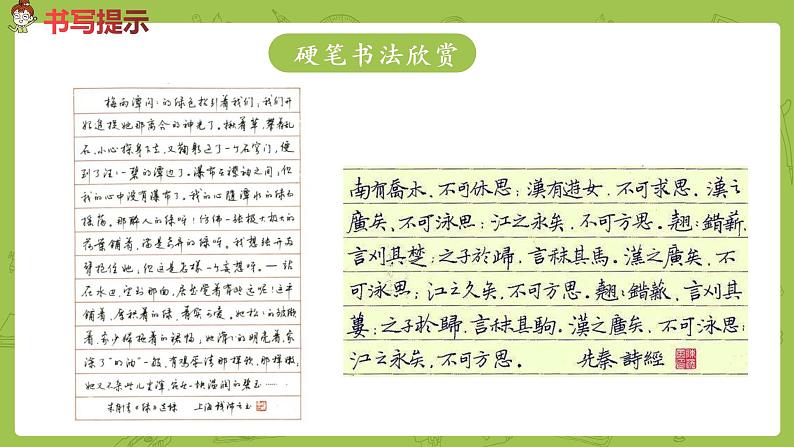 书写提示
硬笔书法欣赏
梅雨潭闪:的绿色招引着我们;我们开
始追捉她那离合的神光了。揪着草,攀着乱
石,小心探身下去,又鞠躬过了一个石穹门,便
到了汪:一碧的潭边了。瀑布在襟袖之间;但
我的心中没有瀑布了。我的心随潭水的绿而
摇荡。那醉人的绿呀!仿佛一张极大极大的
荷葉铺着,满是奇异的绿呀。我想张开两
臂抱住她;但这是怎样一个妄想呀。——站
在水边,望到那面,居然觉着有些远呢!这平
铺着,厚积着的绿,着实可爱。她松:的皱缬
着,象少妇拖着的裙幅;她滑:的明亮着,象
涂了“明油”一般,有鸡蛋清那样软,那样嫩;
她又不杂些儿尘滓,宛如一块温润的碧玉……
朱自清《绿》选抄 上海钱沛云书
南有喬木,不可休思;漢有遊女,不可求思。漢之
廣矣,不可泳思;江之永矣,不可方思。翹:錯薪,
言刈其楚;之子於歸,言秣其馬。漢之廣矣,不
可泳思;江之久矣,不可方思。翹:錯薪,言刈其
蔞;之子於歸,言秣其駒。漢之廣矣,不可泳思;
江之永矣,不可方思。 先秦詩經